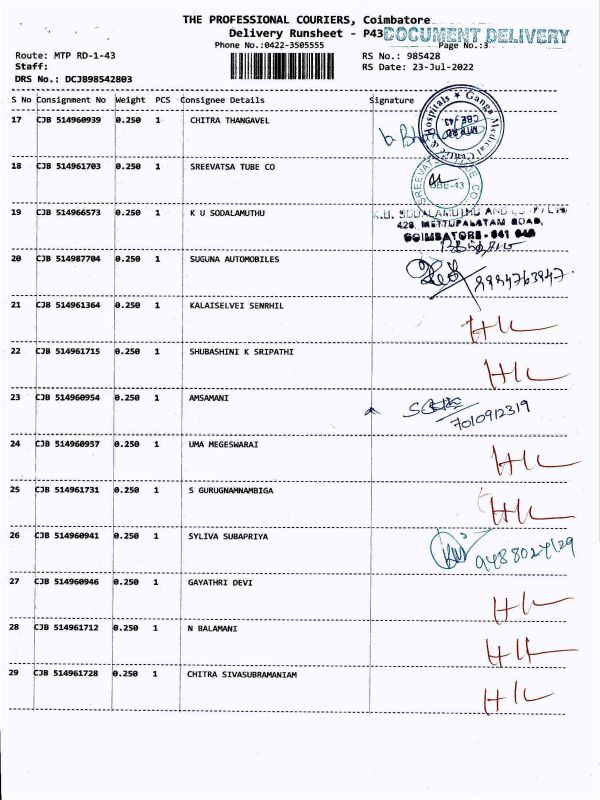 THE PROFESSIONAL COURIERS, Coimbatore
Delivery Runsheet - P43
DOCUMENT DELIVERY
Phone No.:0422-3505555
Page No.:3
Route: MTP RD-1-43
RS No.: 985428
Staff:
RS Date: 23-Jul-2022
DRS No.: DCJB98542803
S No Consignment No Weight PCS Consignee Details Signature
17 CJB 514960939 0.250 1 CHITRA THANGAVEL
Ganga Medical Centre & Hospitals
MTP RD
CBE-43
18 CJB 514961703 0.250 1 SREEVATSA TUBE CO
SREEVATSA TUBE CO
CBE-43
19 CJB 514966573 0.250 1 K U SODALAMUTHU
K.U. SODALAMUTHU AND CO P LTD
428, METTUPALAYAM ROAD,
COIMBATORE - 641 043
20 CJB 514987704 0.250 1 SUGUNA AUTOMOBILES
21 CJB 514961364 0.250 1 KALAISELVEI SENRHIL H/L
22 CJB 514961715 0.250 1 SHUBASHINI K SRIPATHI H/L
23 CJB 514960954 0.250 1 AMSAMANI
7010912319
24 CJB 514960957 0.250 1 UMA MEGESWARAI H/L
25 CJB 514961731 0.250 1 S GURUGNAMNAMBIGA H/L
26 CJB 514960941 0.250 1 SYLIVA SUBAPRIYA
27 CJB 514960946 0.250 1 GAYATHRI DEVI H/L
28 CJB 514961712 0.250 1 N BALAMANI H/L
29 CJB 514961728 0.250 1 CHITRA SIVASUBRAMANIAM H/L